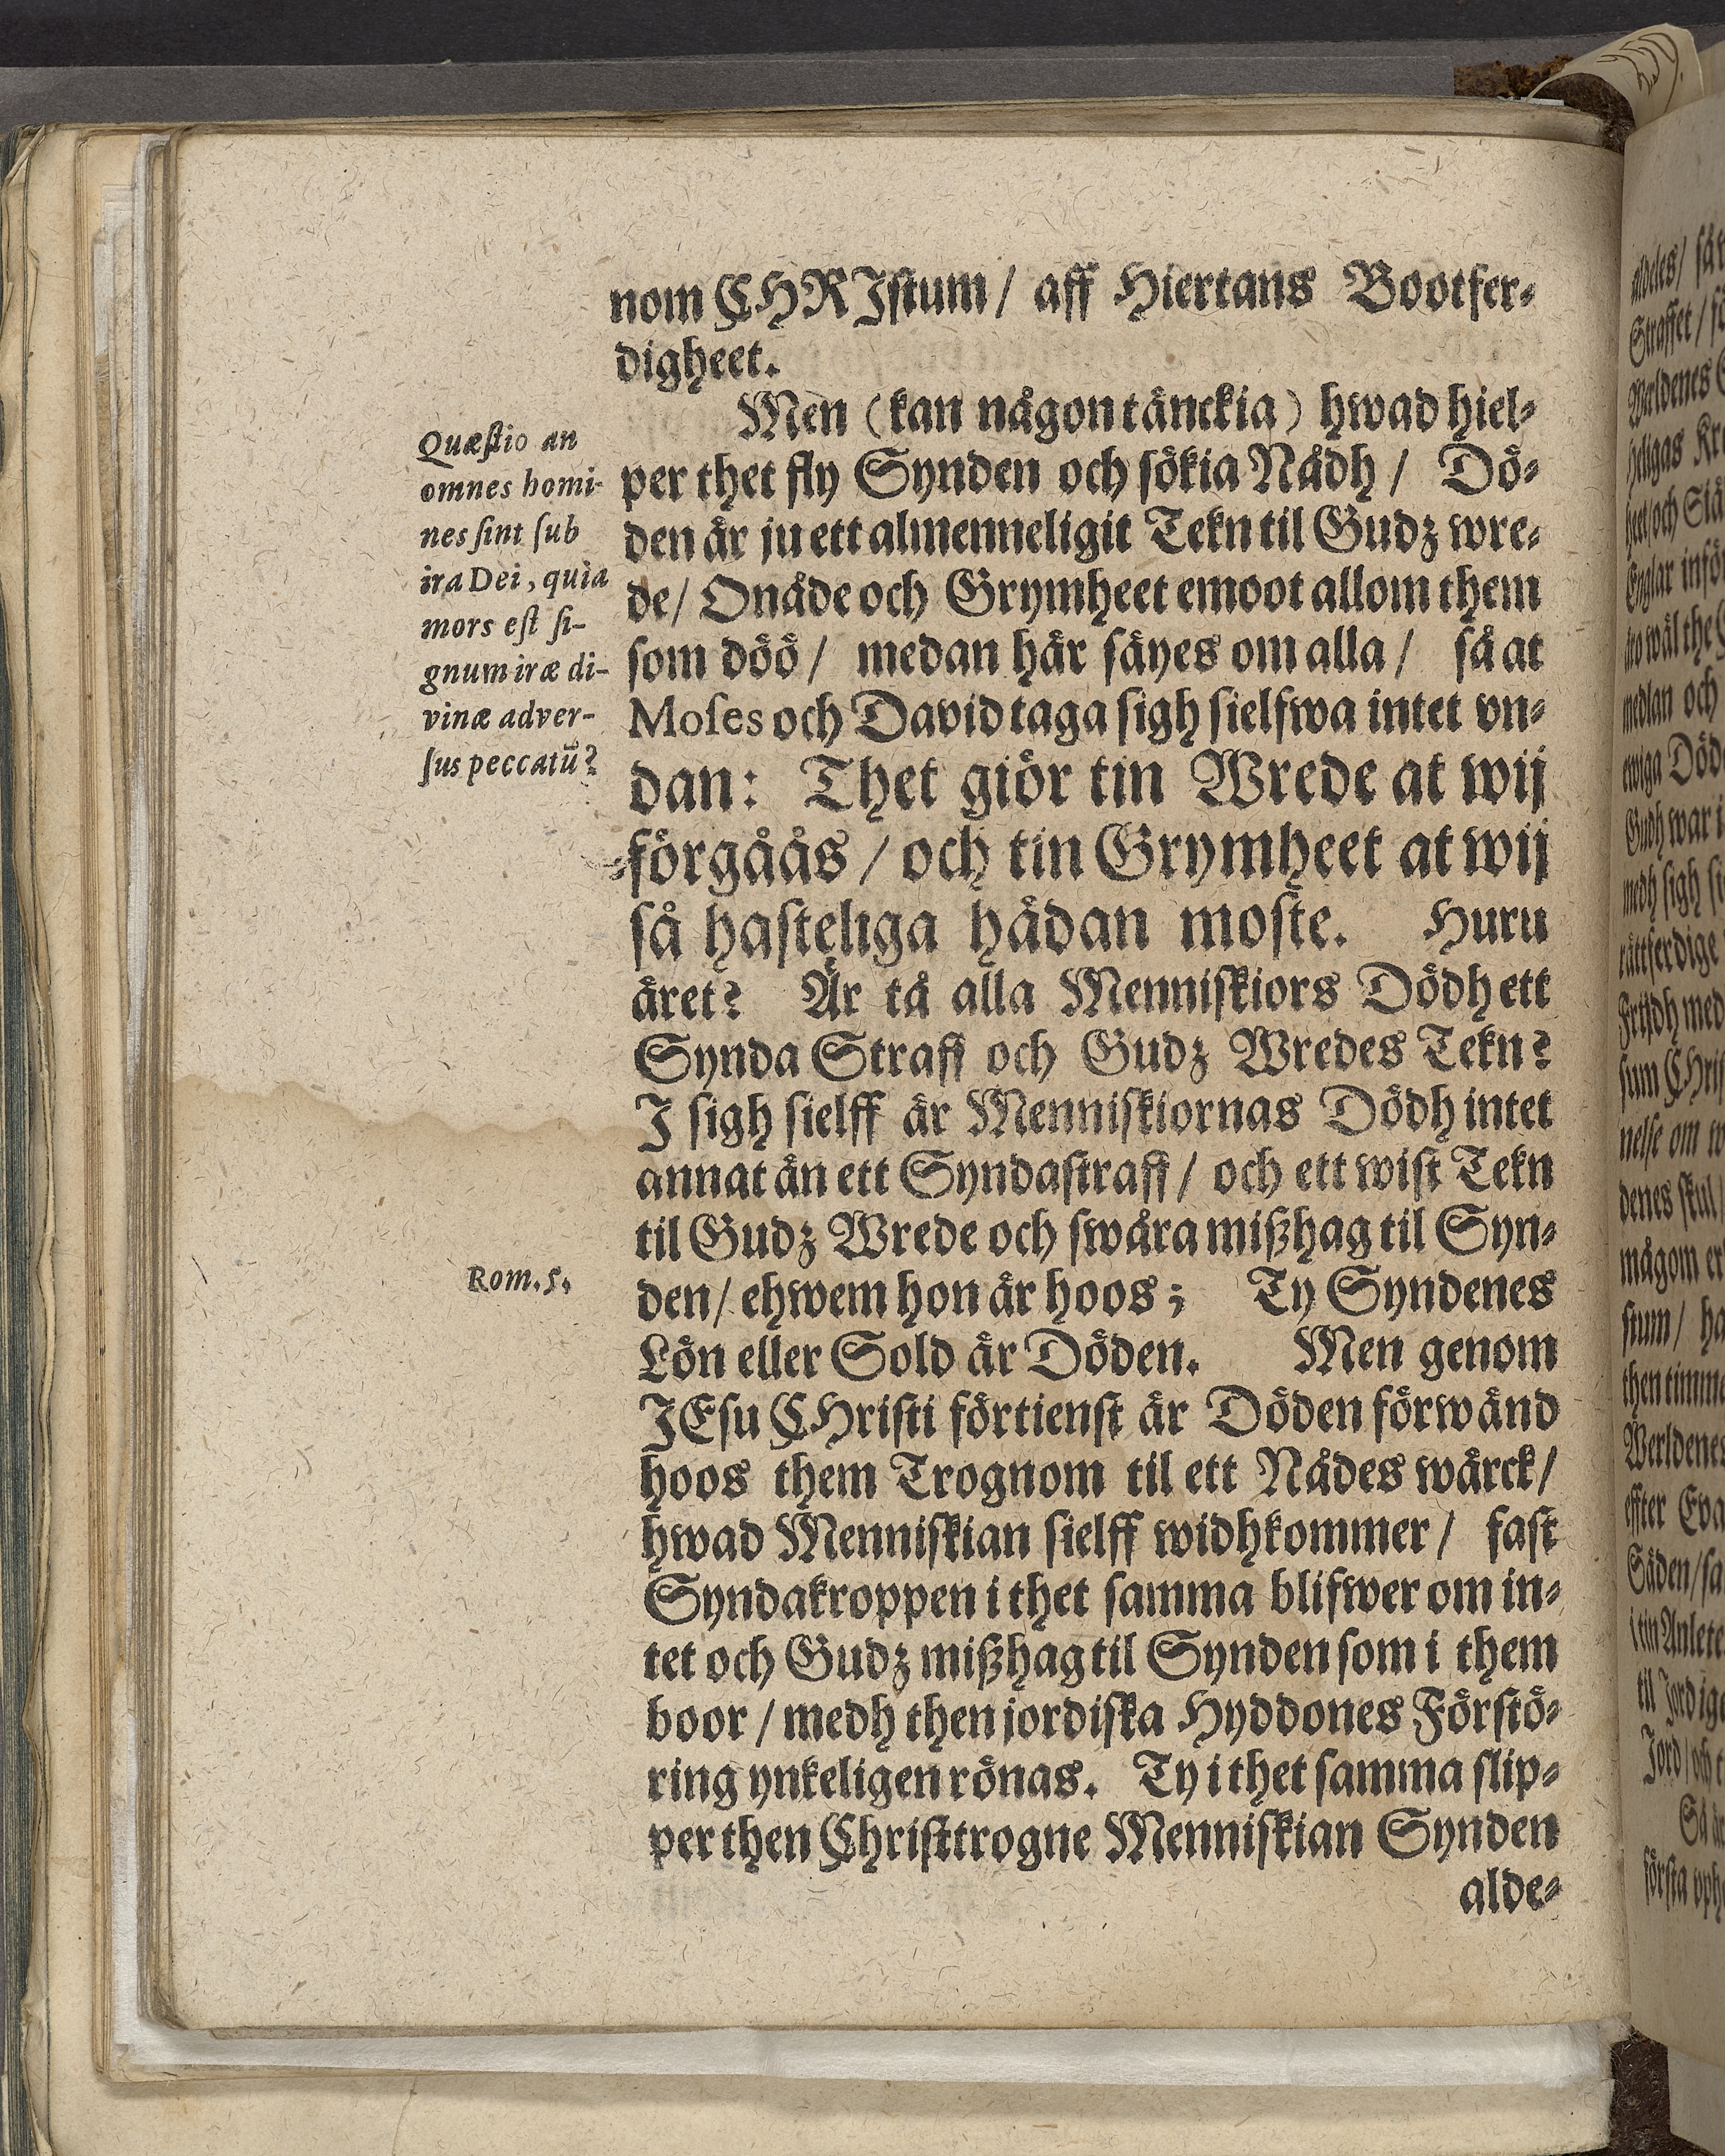 nom CHRIstum / aff Hiertans Bootfer-
digheet.
Men (kan någon tänckia) hwad hiel-
per thet fly Synden och sökia Nådh / Dö-
den är ju ett almenneligit Tekn til Gudz wre-
de / Onåde och Grymheet emoot allom them
som döö / medan här säyes om alla / så at
Moses och David taga sigh sielfwa intet vn-
dan: Thet giör tin Wrede at wij
förgåås / och tin Grymheet at wij
så hasteliga hädan moste. Huru
äret? Är tå alla Menniskiors Dödh ett
Synda Straff och Gudz Wredes Tekn?
I sigh sielff är Menniskiornas Dödh intet
annat än ett Syndastraff / och ett wist Tekn
til Gudz Wrede och swåra mißhag til Syn-
den / ehwem hon är hoos; Ty Syndenes
Lön eller Sold är Döden. Men genom
JEsu CHristi förtienst är Döden förwänd
hoos them Trognom til ett Nådes wärck /
hwad Menniskian sielff widhkommer / fast
Syndakroppen i thet samma blifwer om in-
tet och Gudz mißhag til Synden som i them
boor / medh then jordiska Hyddones Förstö-
ring ynkeligen rönas. Ty i thet samma slip-
per then Christtrogne Menniskian Synden
alde-
Quæstio an
omnes homi-
nes sint sub
ira Dei, quia
mors est si-
gnum iræ di-
vinæ adver-
sus peccatū?
Rom. 5.